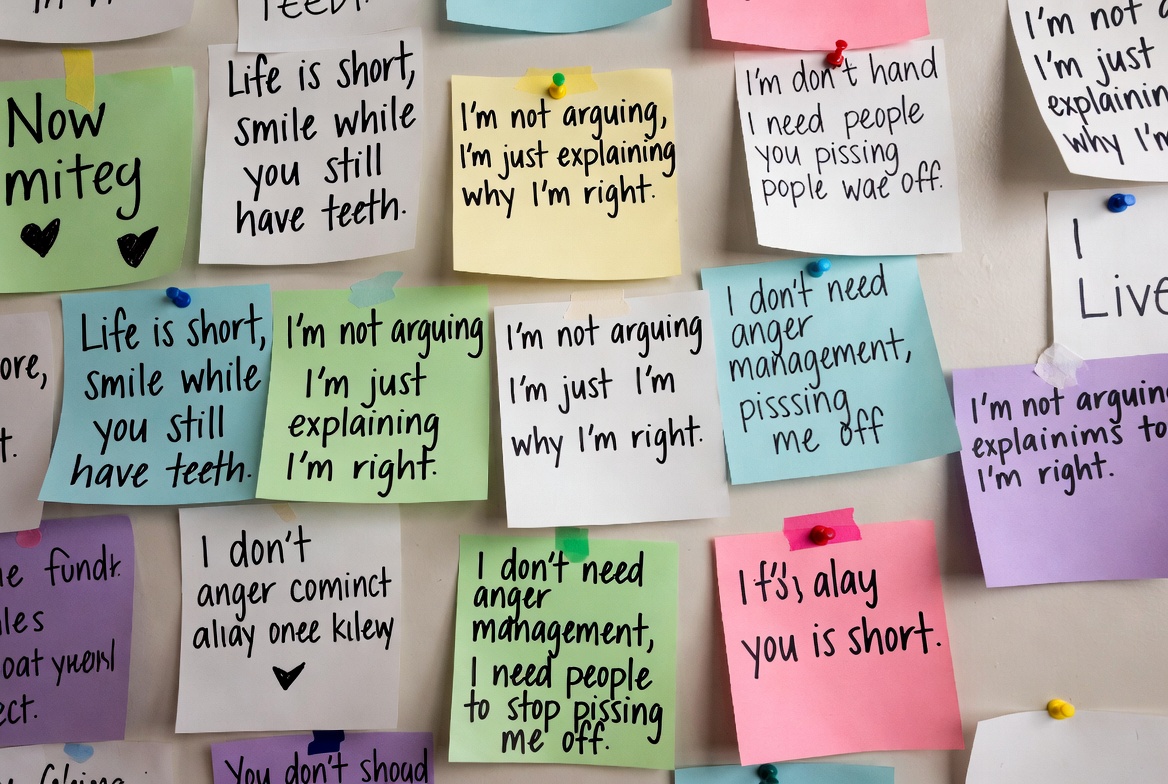 Now
mitey
Life is short,
smile while
you still
have teeth.
I'm not arguing,
I'm just explaining
why I'm right.
I'm don't hand
I need people
you pissing
pople wae off.
I'm not a
I'm just
explainin
why I'm
I
Live
ore,
t.
Life is short,
smile while
you still
have teeth.
I'm not arguing
I'm just
explaining
I'm right.
I'm not arguing
I'm just I'm
why I'm right.
I don't need
anger
management,
pisssing
me off
I'm not arguing
explainims to
I'm right.
ne fundt.
les
oat
ect.
I don't
anger cominct
aliay onee kilew
I don't need
anger
management,
I need people
to stop pissing
me off.
alay
you is short.
You don't shoud